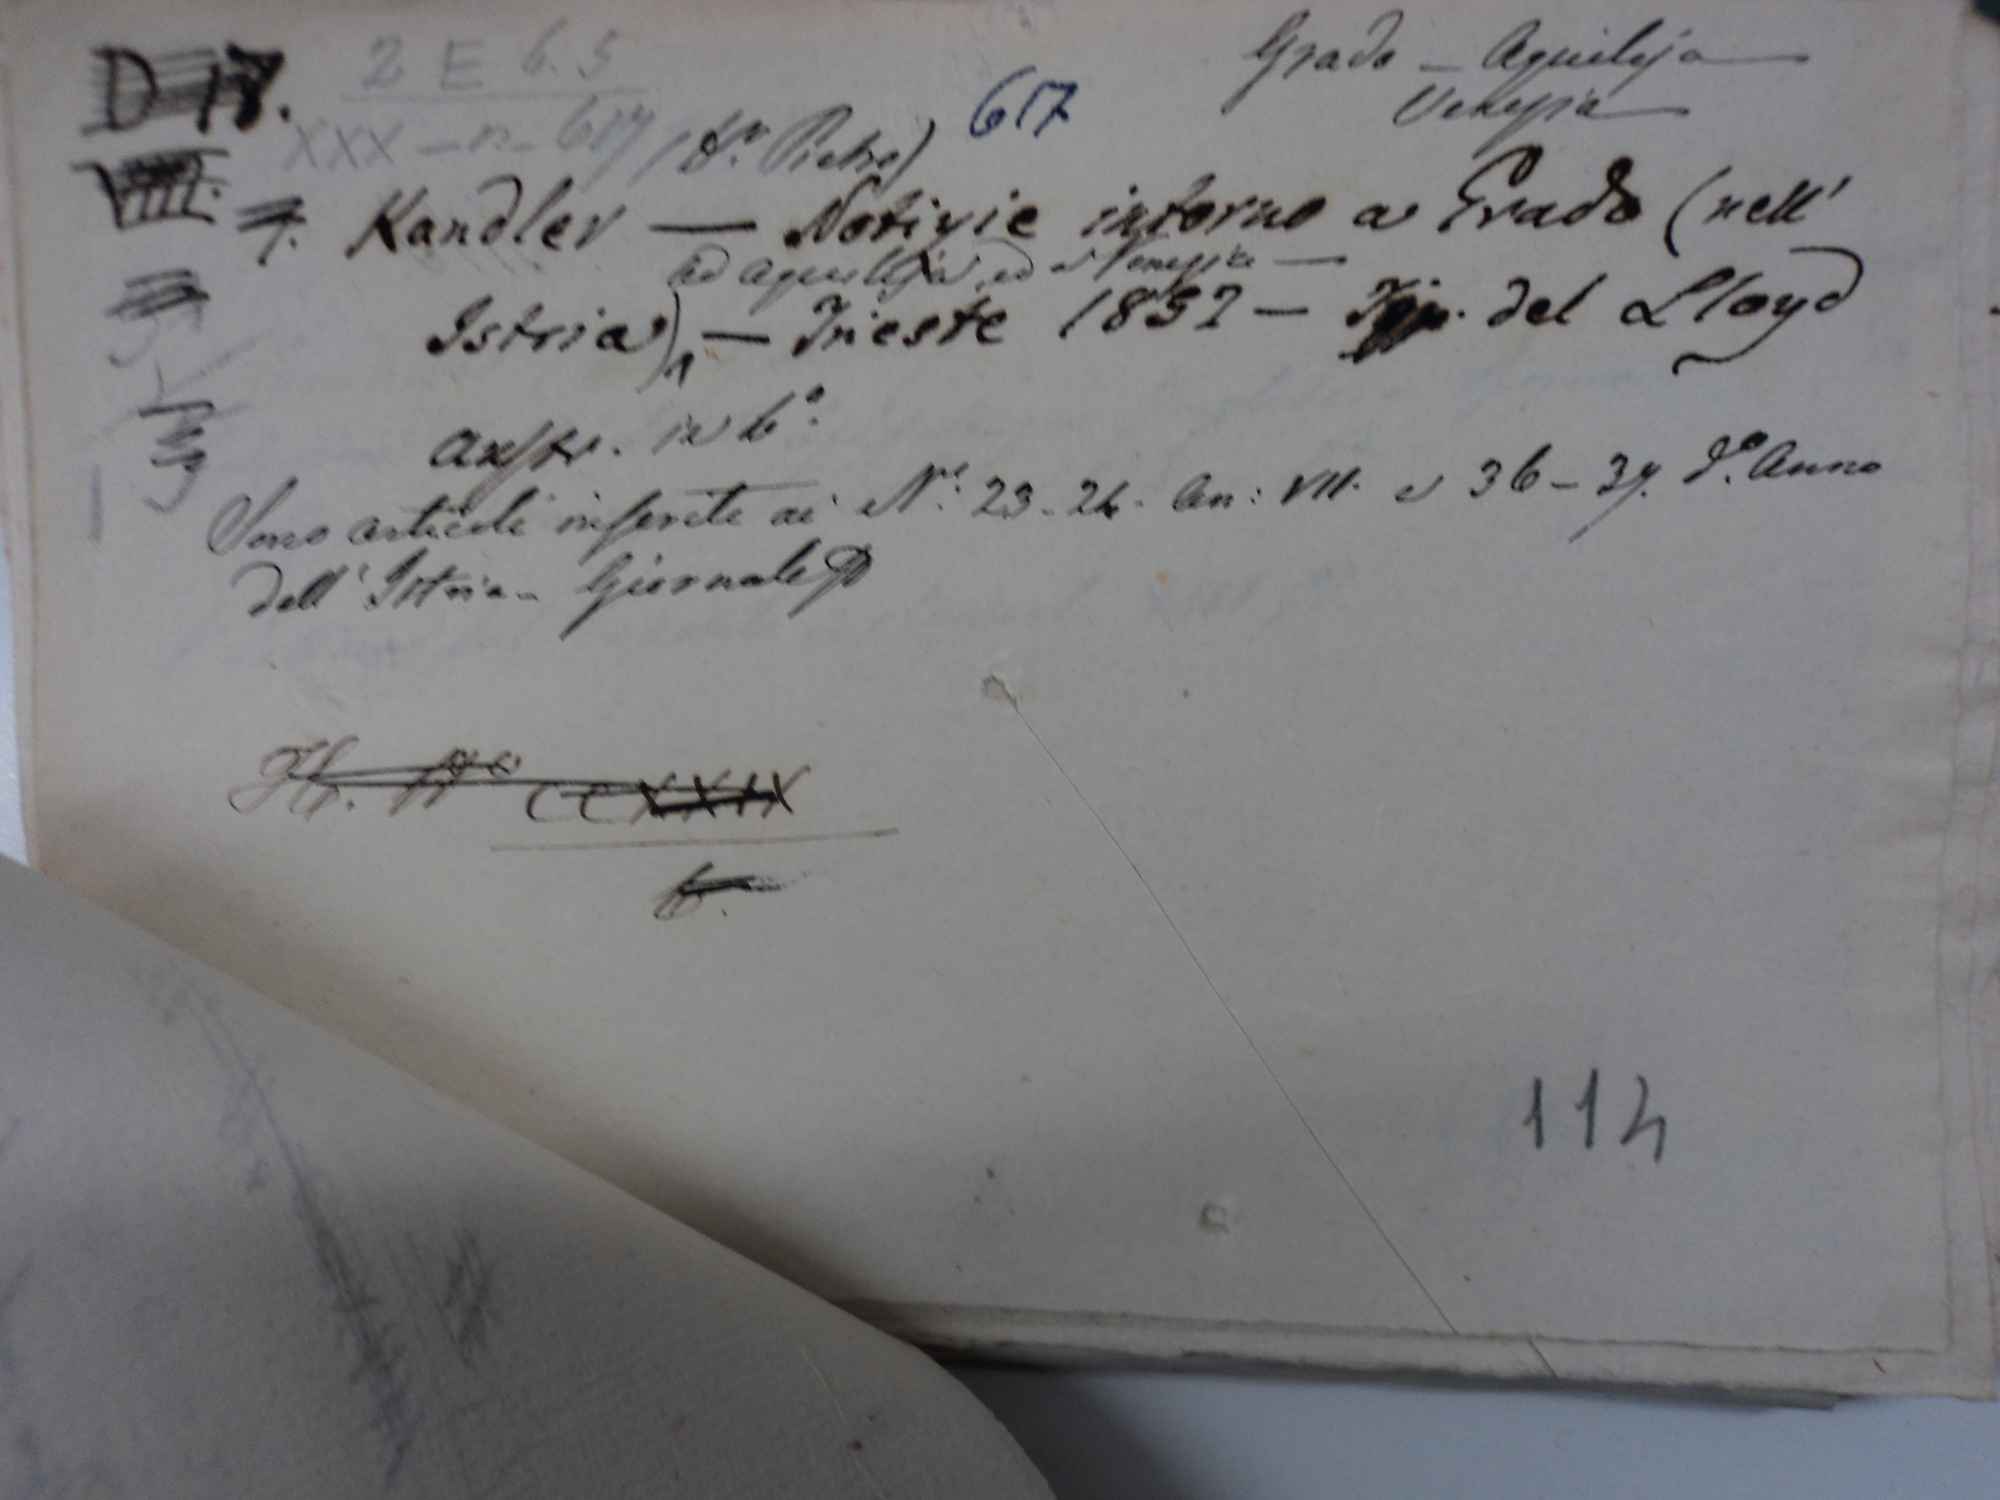 D 17.
2 E 6.5
617
Grado - Aquileja
Venezia
XXX - n - 617
(Dr. Pietro)
VIII.
7. Kandler — Notizie intorno a Grado (nell'
ed Aquileja, ed a Venezia —
Istria) — Trieste 1852 — Tip. del Lloyd
austr. in 6°.
Sono articoli inseriti ai Ni. 23-24. An: VII. e 36-37. do. Anno
dell'Istria - Giornale
CCXXIX
6.
114